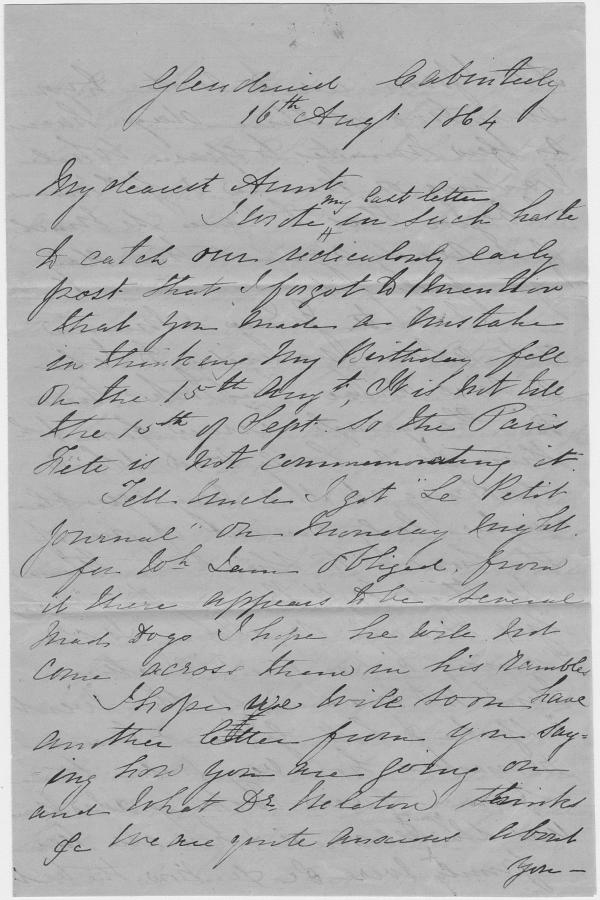 Glendruid Cabinteely
16th Augt 1864
My dearest Aunt
my last letter
I wrote in such haste
to catch our rediculously early
post that I forgot to mention
that you made a mistake
in thinking my Birthday fell
on the 15th Augt, It is not till
the 15th of Sept. so the Paris
Fête is not commemorating it.
Tell Uncle I got "Le Petit
Journal" on Monday night.
for wh I am obliged. from
it there appears to be several
mad Dogs I hope he will not
come across them in his rambles
I hope we will soon have
another letter from you say=
ing how you are going on
and what Dr. Nelaton thinks
&c We are quite anxious about
you –